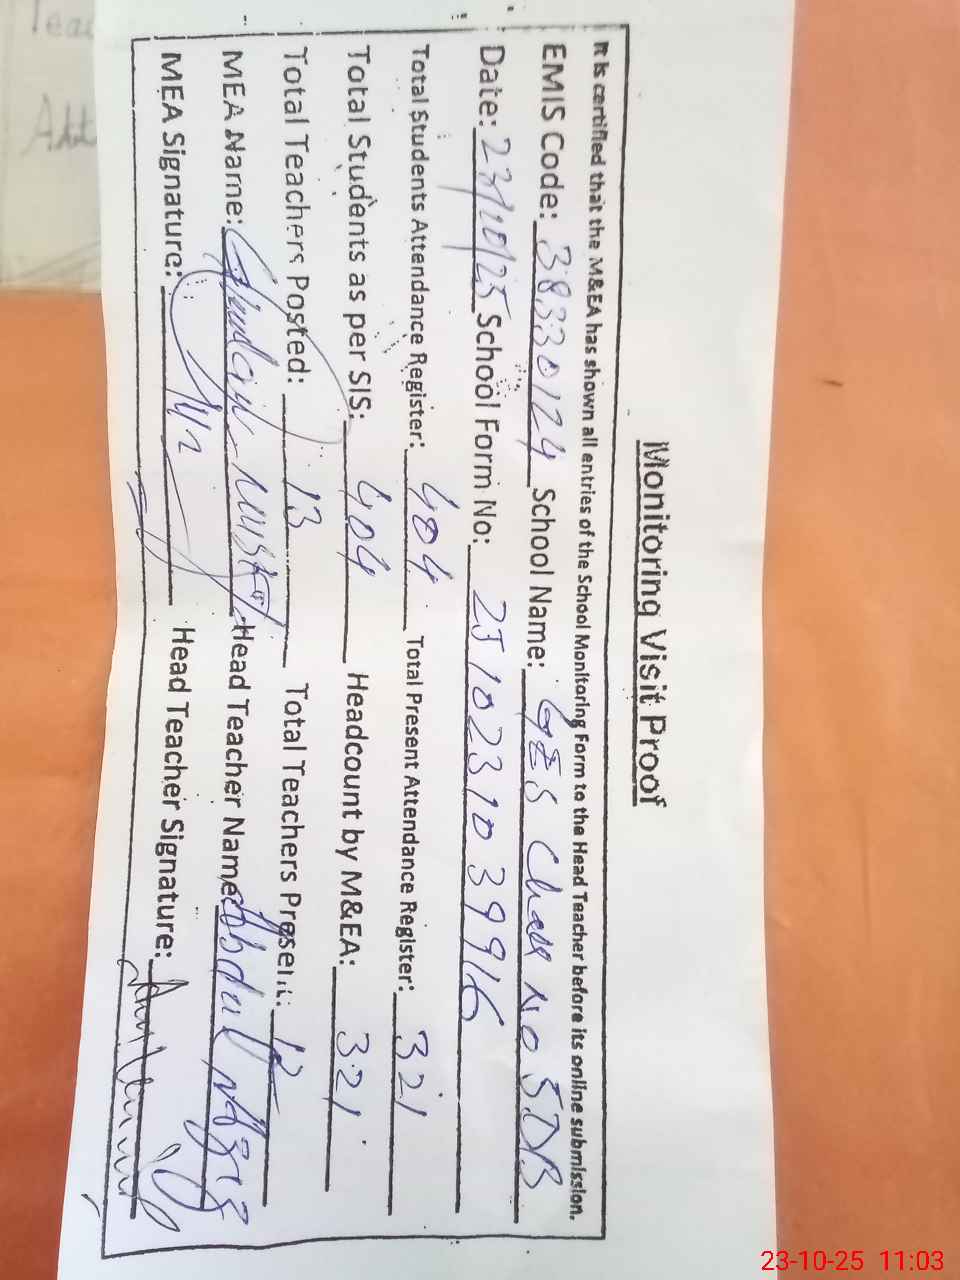 Monitoring Visit Proof
It is certified that the M&EA has shown all entries of the School Monitoring Form to the Head Teacher before its online submission.
EMIS Code: 38330124 School Name: GES Chak No 5DB
Date: 23/10/25 School Form No: 2310231039916
Total Students Attendance Register: 404 Total Present Attendance Register: 321
Total Students as per SIS: 404 Headcount by M&EA: 321
Total Teachers Posted: 13 Total Teachers Present: 12
MEA Name: Head Teacher Name: Abdul Aziz
MEA Signature: Head Teacher Signature:
23-10-25 11:03